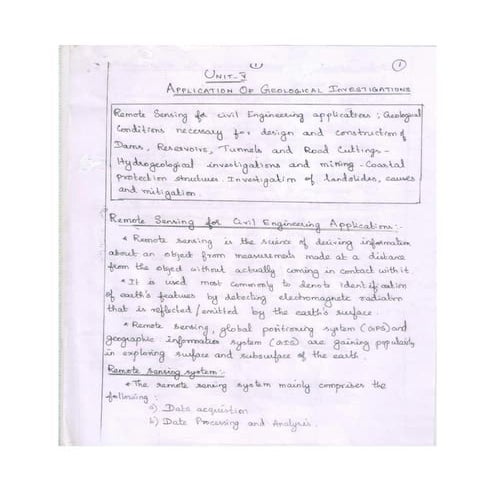 1
1
UNIT-V
APPLICATION OF GEOLOGICAL INVESTIGATIONS
Remote Sensing for civil Engineering applications; Geological
Conditions necessary for design and construction of
Dams, Reservoirs, Tunnels and Road Cuttings -
Hydrogeological investigations and mining - Coastal
protection structures. Investigation of landslides, causes
and mitigation.
Remote Sensing for Civil Engineering Applications:-
* Remote sensing is the science of deriving information
about an object from measurements made at a distance
from the object without actually coming in contact with it
* It is used most commonly to denote identification
of earth's features by detecting electromagnetic radiation
that is reflected/emitted by the earth's surface.
* Remote sensing, global positioning system (GPS) and
geographic information system (GIS) are gaining popularity
in exploring surface and subsurface of the earth.
Remote sensing system:-
* The remote sensing system mainly comprises the
following:
a) Data acquistion
b) Data Processing and Analysis.